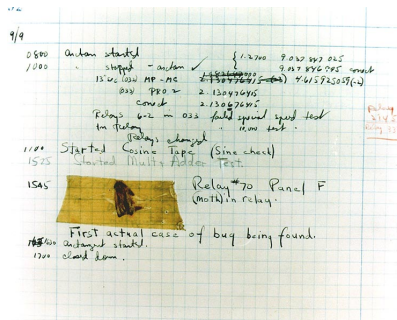 9/9
0800 Antan started
1000 " stopped - antan ✓ { 1.2700 9.037 847 025
9.037 846 995 conect
13"00 (032) MP - MC 4.615925059(-2)
(033) PRO 2 2.130476415
conect 2.130676415
Relays 6-2 in 033 failed special speed test
in Relay " 10,000 test.
Relays changed
Relay
2145
1100 Started Cosine Tape (Sine check)
1525 Started Mult + Adder Test.
1545 Relay #70 Panel F
(moth) in relay.
First actual case of bug being found.
1630 Antangent started.
1700 closed down.